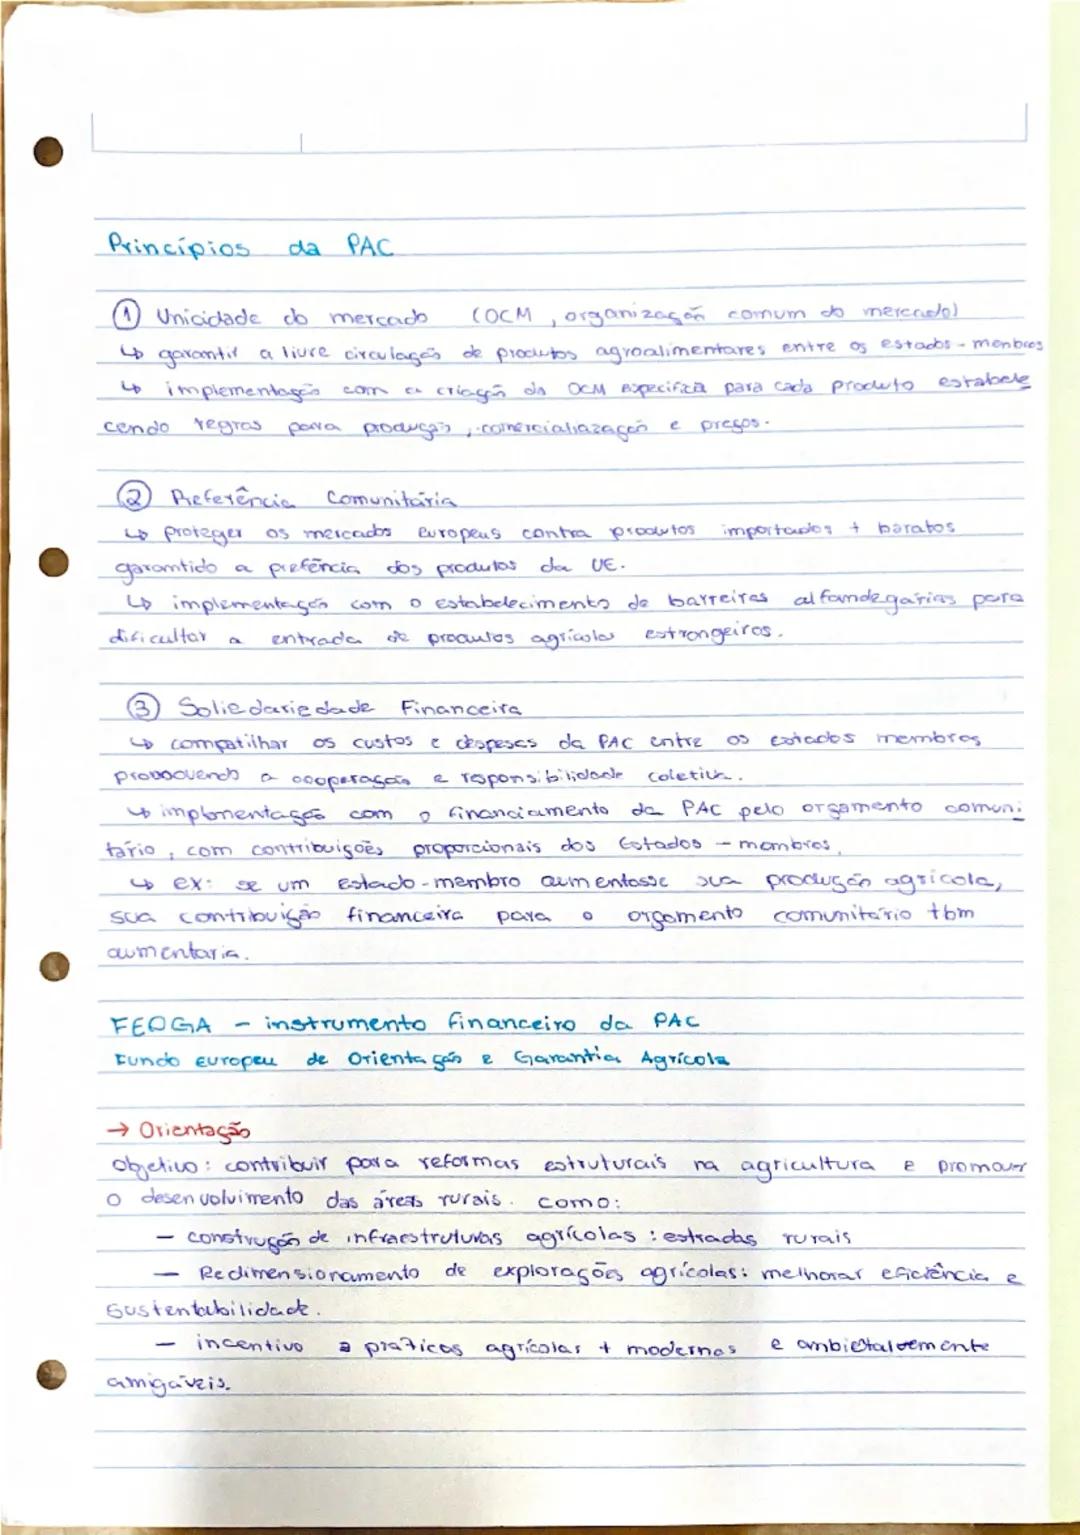 Princípios da PAC
① Unicidade do mercado (OCM, organização comum do mercado)
↳ garantir a livre circulação de produtos agroalimentares entre os estados-membros
↳ implementação com a criação da OCM específica para cada produto estabele
cendo regras para produção, comercialiazação e preços.
② Preferência Comunitária
↳ proteger os mercados europeus contra produtos importados + baratos
garantido a prefência dos produtos da UE.
↳ implementação com o estabelecimento de barreiras alfandegárias para
dificultar a entrada de produtos agrícolas estrangeiros.
③ Soliedariedade Financeira
↳ compatilhar os custos e despesas da PAC entre os estados membros
promovendo a cooperação e responsibilidade coletiva.
↳ implementação com o financiamento da PAC pelo orçamento comuni
tário, com contribuições proporcionais dos Estados-membros.
↳ ex: se um estado-membro aumentasse sua produção agrícola,
sua contribuição financeira para o orçamento comunitário tbm
aumentaria.
FEOGA - instrumento financeiro da PAC
Fundo Europeu de Orientação e Garantia Agrícola
→ Orientação
objetivo: contribuir para reformas estruturais na agricultura e promover
o desenvolvimento das áreas rurais. como:
- construção de infraestruturas agrícolas: estradas rurais
- Redimensionamento de explorações agrícolas: melhorar eficiência e
sustentabilidade.
- incentivo a práticas agrícolas + modernas e
amigáveis.